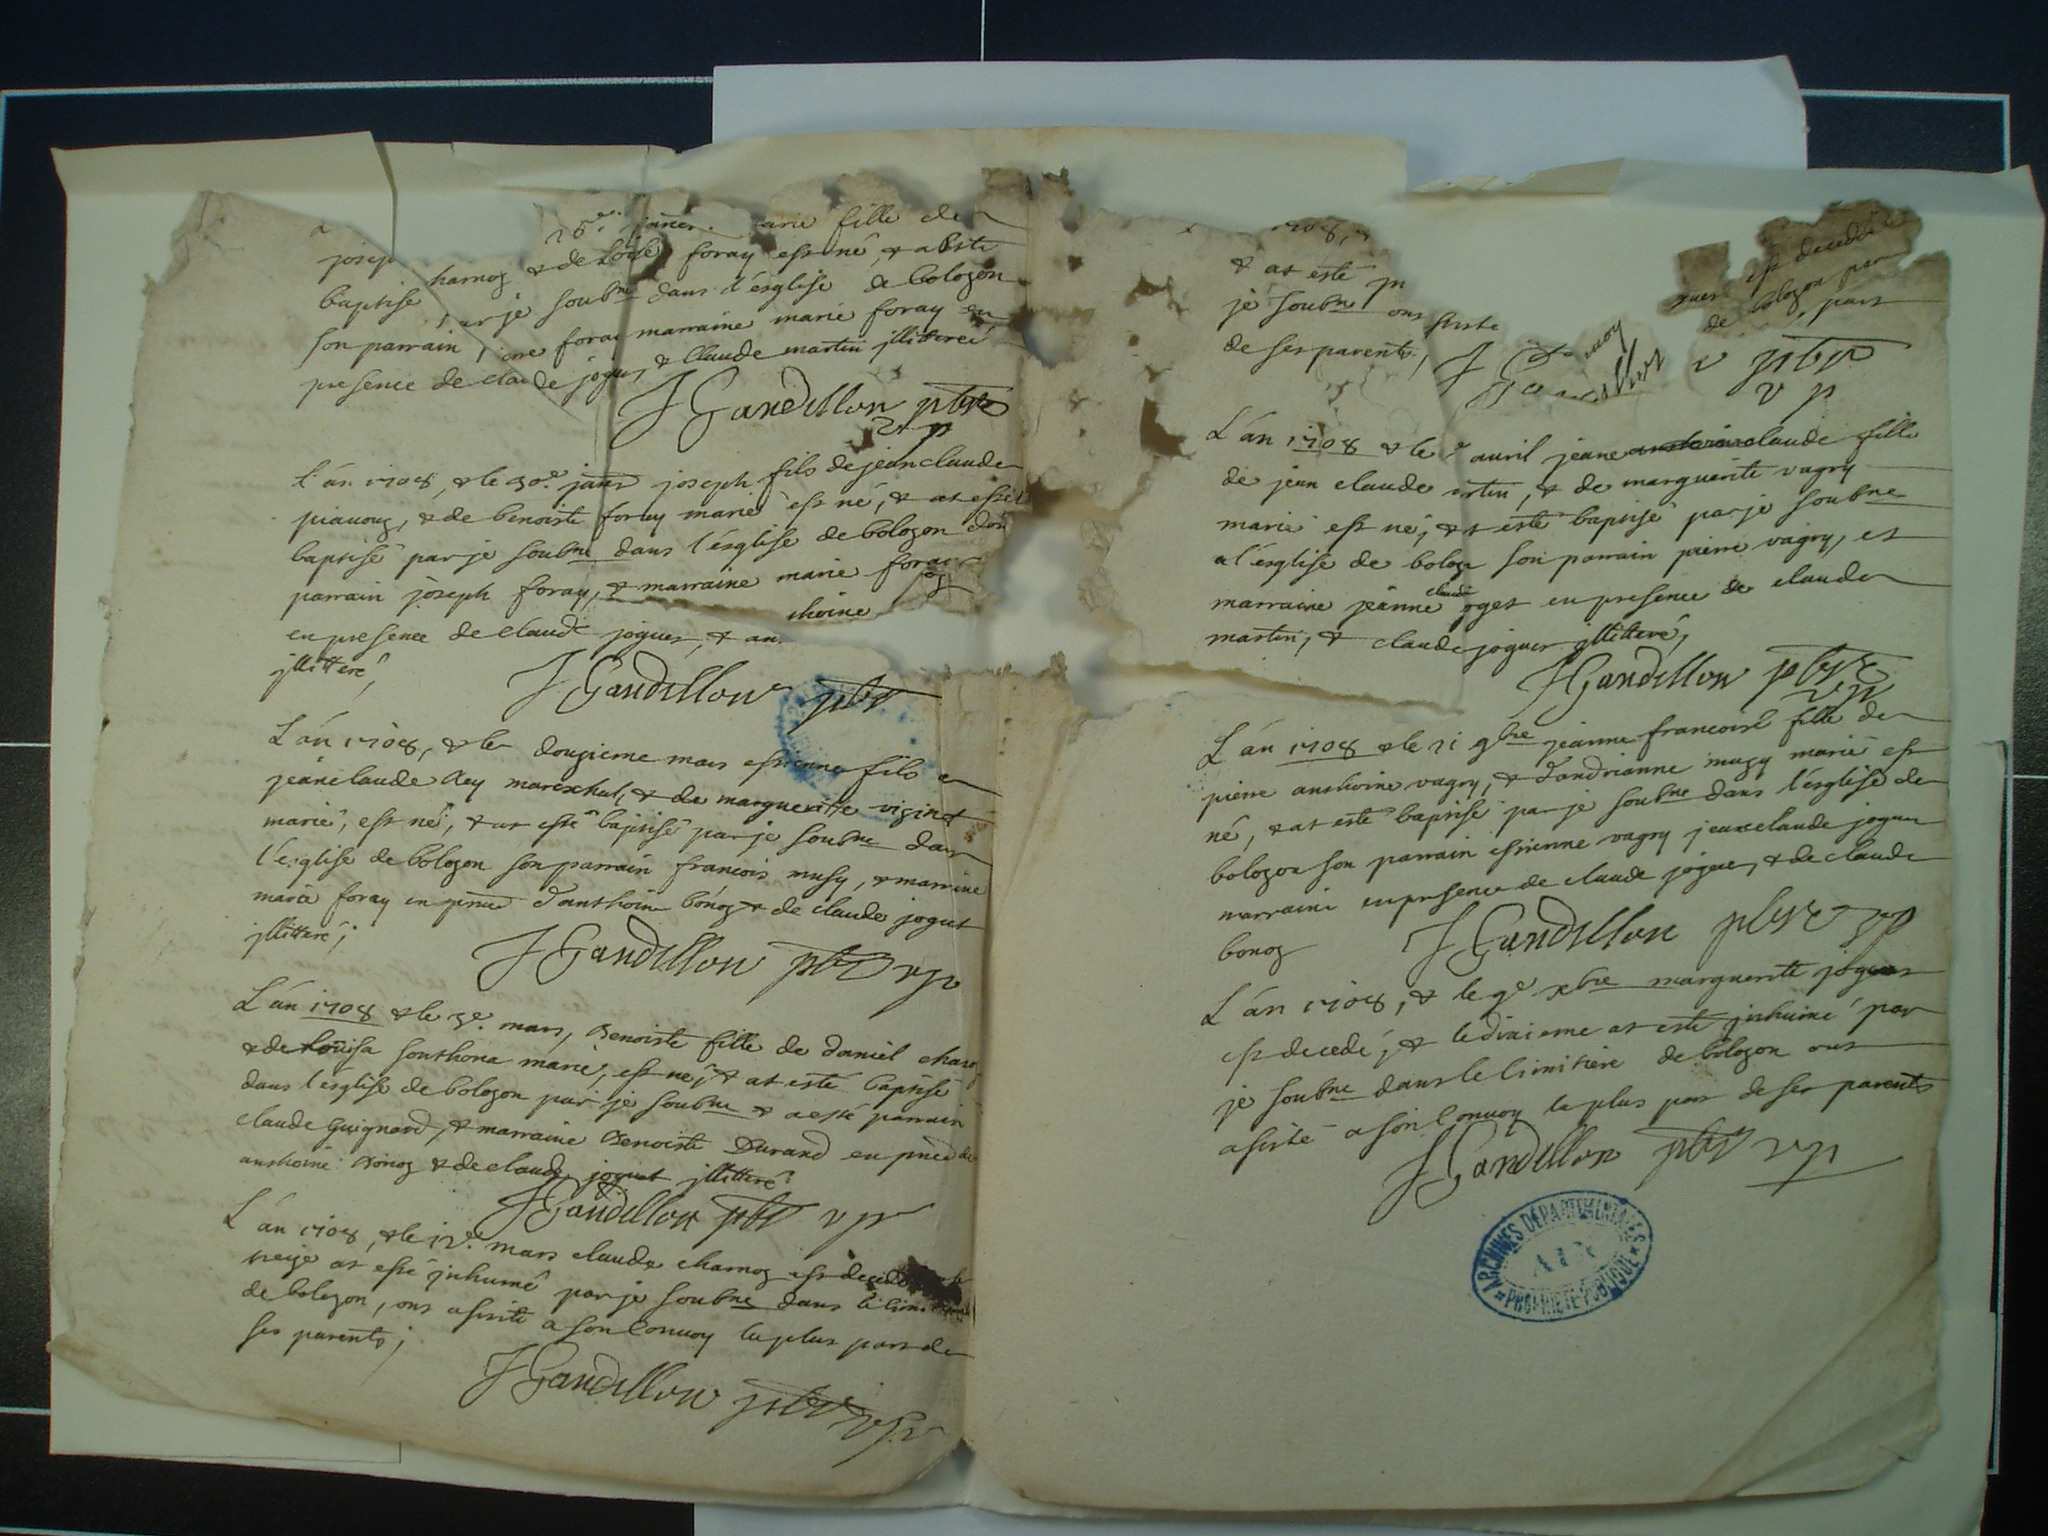 janer. arie fille de
josep harnoz & de Loise foray est né, & a este
baptise par je soubne dans l'ésglise de bolozon
son parrain foray marraine marie foray en
presence de claude joguet & Claude martin jllitteré
J Gandillon pbre
v p
L'án 1708, & le 30e janer joseph fils de jean claude
piauouz, & de benoiste foray marié est né, & at esté
baptisé par je soubne dans l'ésglise de bolozon son
parrain joseph foray, & marraine marie foray
en presence de claude joguet, & anthoine
jllitteré,
J Gandillon pbre
L'án 1708, & le douzieme mars estienne fils a
jeanclaude Rey marexhal, & de margueritte vizinet
marié, est né, & at esté baptisé par je soubne dans
l'esglise de bolozon son parrain francois musy, & marraine
marie foray en pnce d'anthoine bónoz & de claude joguet
jllitteré;
J Gandillon pbre v p
L'án 1708 & le 3e. mars, Benoiste fille de daniel charnoz
& de Loüisa sonthona marié, est né, & at esté baptisé
dans l'ésglise de bolozon par je soubne & a esté parrain
claude Guignard, & marraine Benoiste Durand en pnce de
anthoine bonoz & de claude joguet jllitteré
J Gandillon pbre v p
L'án 1708, & le 12e. mars claude charnoz est decedé
treize at esté jnhumé par je soubne dans le cimitiere
de bolozon, ont asisté a son Conuoy la plus part de
ses parents;
J Gandillon pbre v p
1708,
est decedé
& at esté jn de bolozon par
je soubne ont asisté part
de ses parents,
J Gandillon pbre
v p
L'án 1708 & le avril jeane claude fille
de jean claude martin, & de marguerite vagry
marié est né, & at esté baptisé par je soubne
a l'ésglise de bolozon son parrain pierre vagry, et
marraine jeánne claude joget en presence de claude
martin, & claude joguet jllitteré,
J Gandillon pbre
v p
L'án 1708 & le 21 9bre jeánne francoise fille de
pierre anthoine vagry, & d'andrianne muzy marié est
né, & at esté baptisé par je soubne dans l'ésglise de
bolozon son parrain estienne vagry jeaneclaude joguet
marraine en presence de claude joguet, & de claude
bonoz
J Gandillon pbre v p
L'án 1708, & le 9e xbre margueritte joguet
est decedé, & le dixieme at esté jnhumé par
je soubne dans le Cimitiére de bolozon ont
asisté a son Conuoy la plus part de ses parents
J Gandillon pbre v p
ARCHIVES DEPARTEMENTALES
AIN
PROPRIETE PUBLIQUE